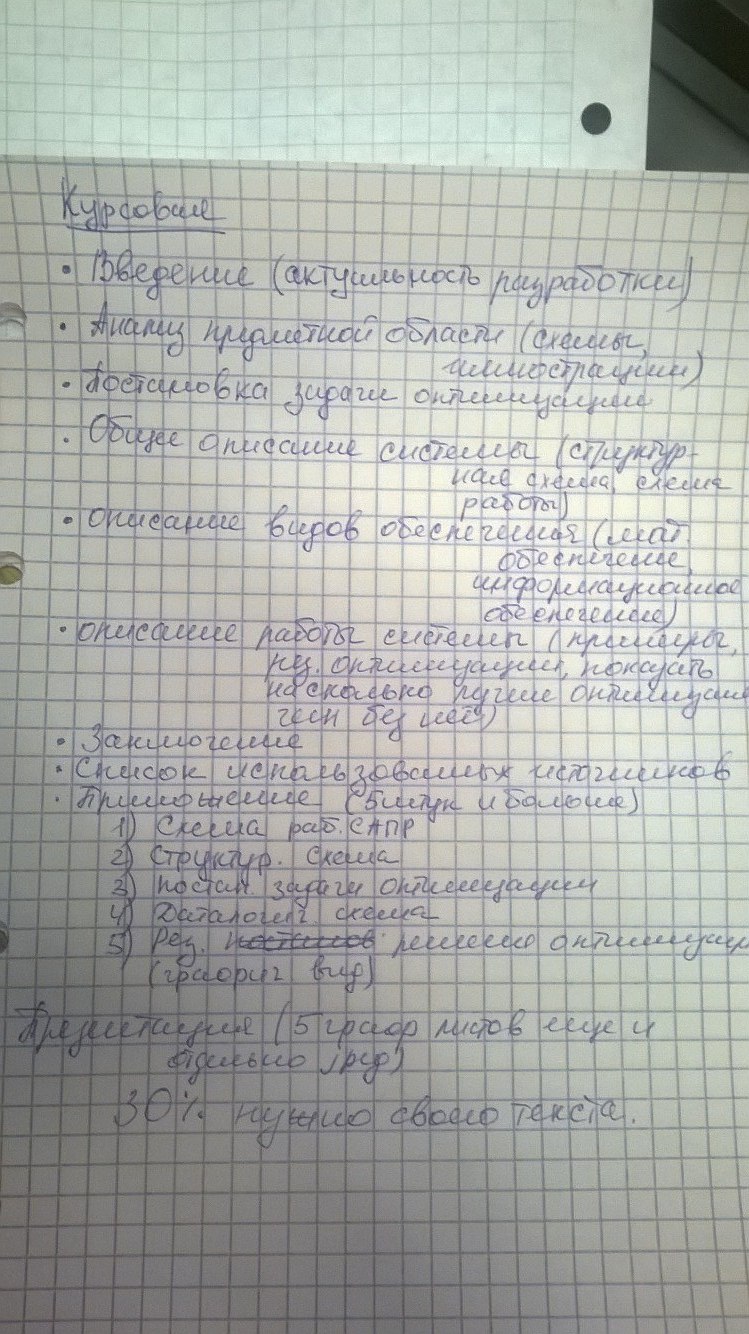 Курсовые
• Введение (актуальность разработки)
• Анализ предметной области (схемы,
иллюстрации)
• Постановка задачи оптимизации
• Общее описание системы (структур-
ная схема, схема
работы)
• описание видов обеспечения (мат.
обеспечение,
информационное
обеспечение)
• описание работы системы (примеры,
рез. оптимизации, показать
насколько лучше оптимизация
чем без неё)
• Заключение
• Список использованных источников
• Приложение (5 штук и больше)
1) Схема раб. САПР
2) Структур. схема
3) Постан. задачи оптимизации
4) Даталогич. схема
5) Рез. решению оптимизац
(графич вид)
Презентация (5 граф листов еще и
отдельно )
30% нужно своего текста.